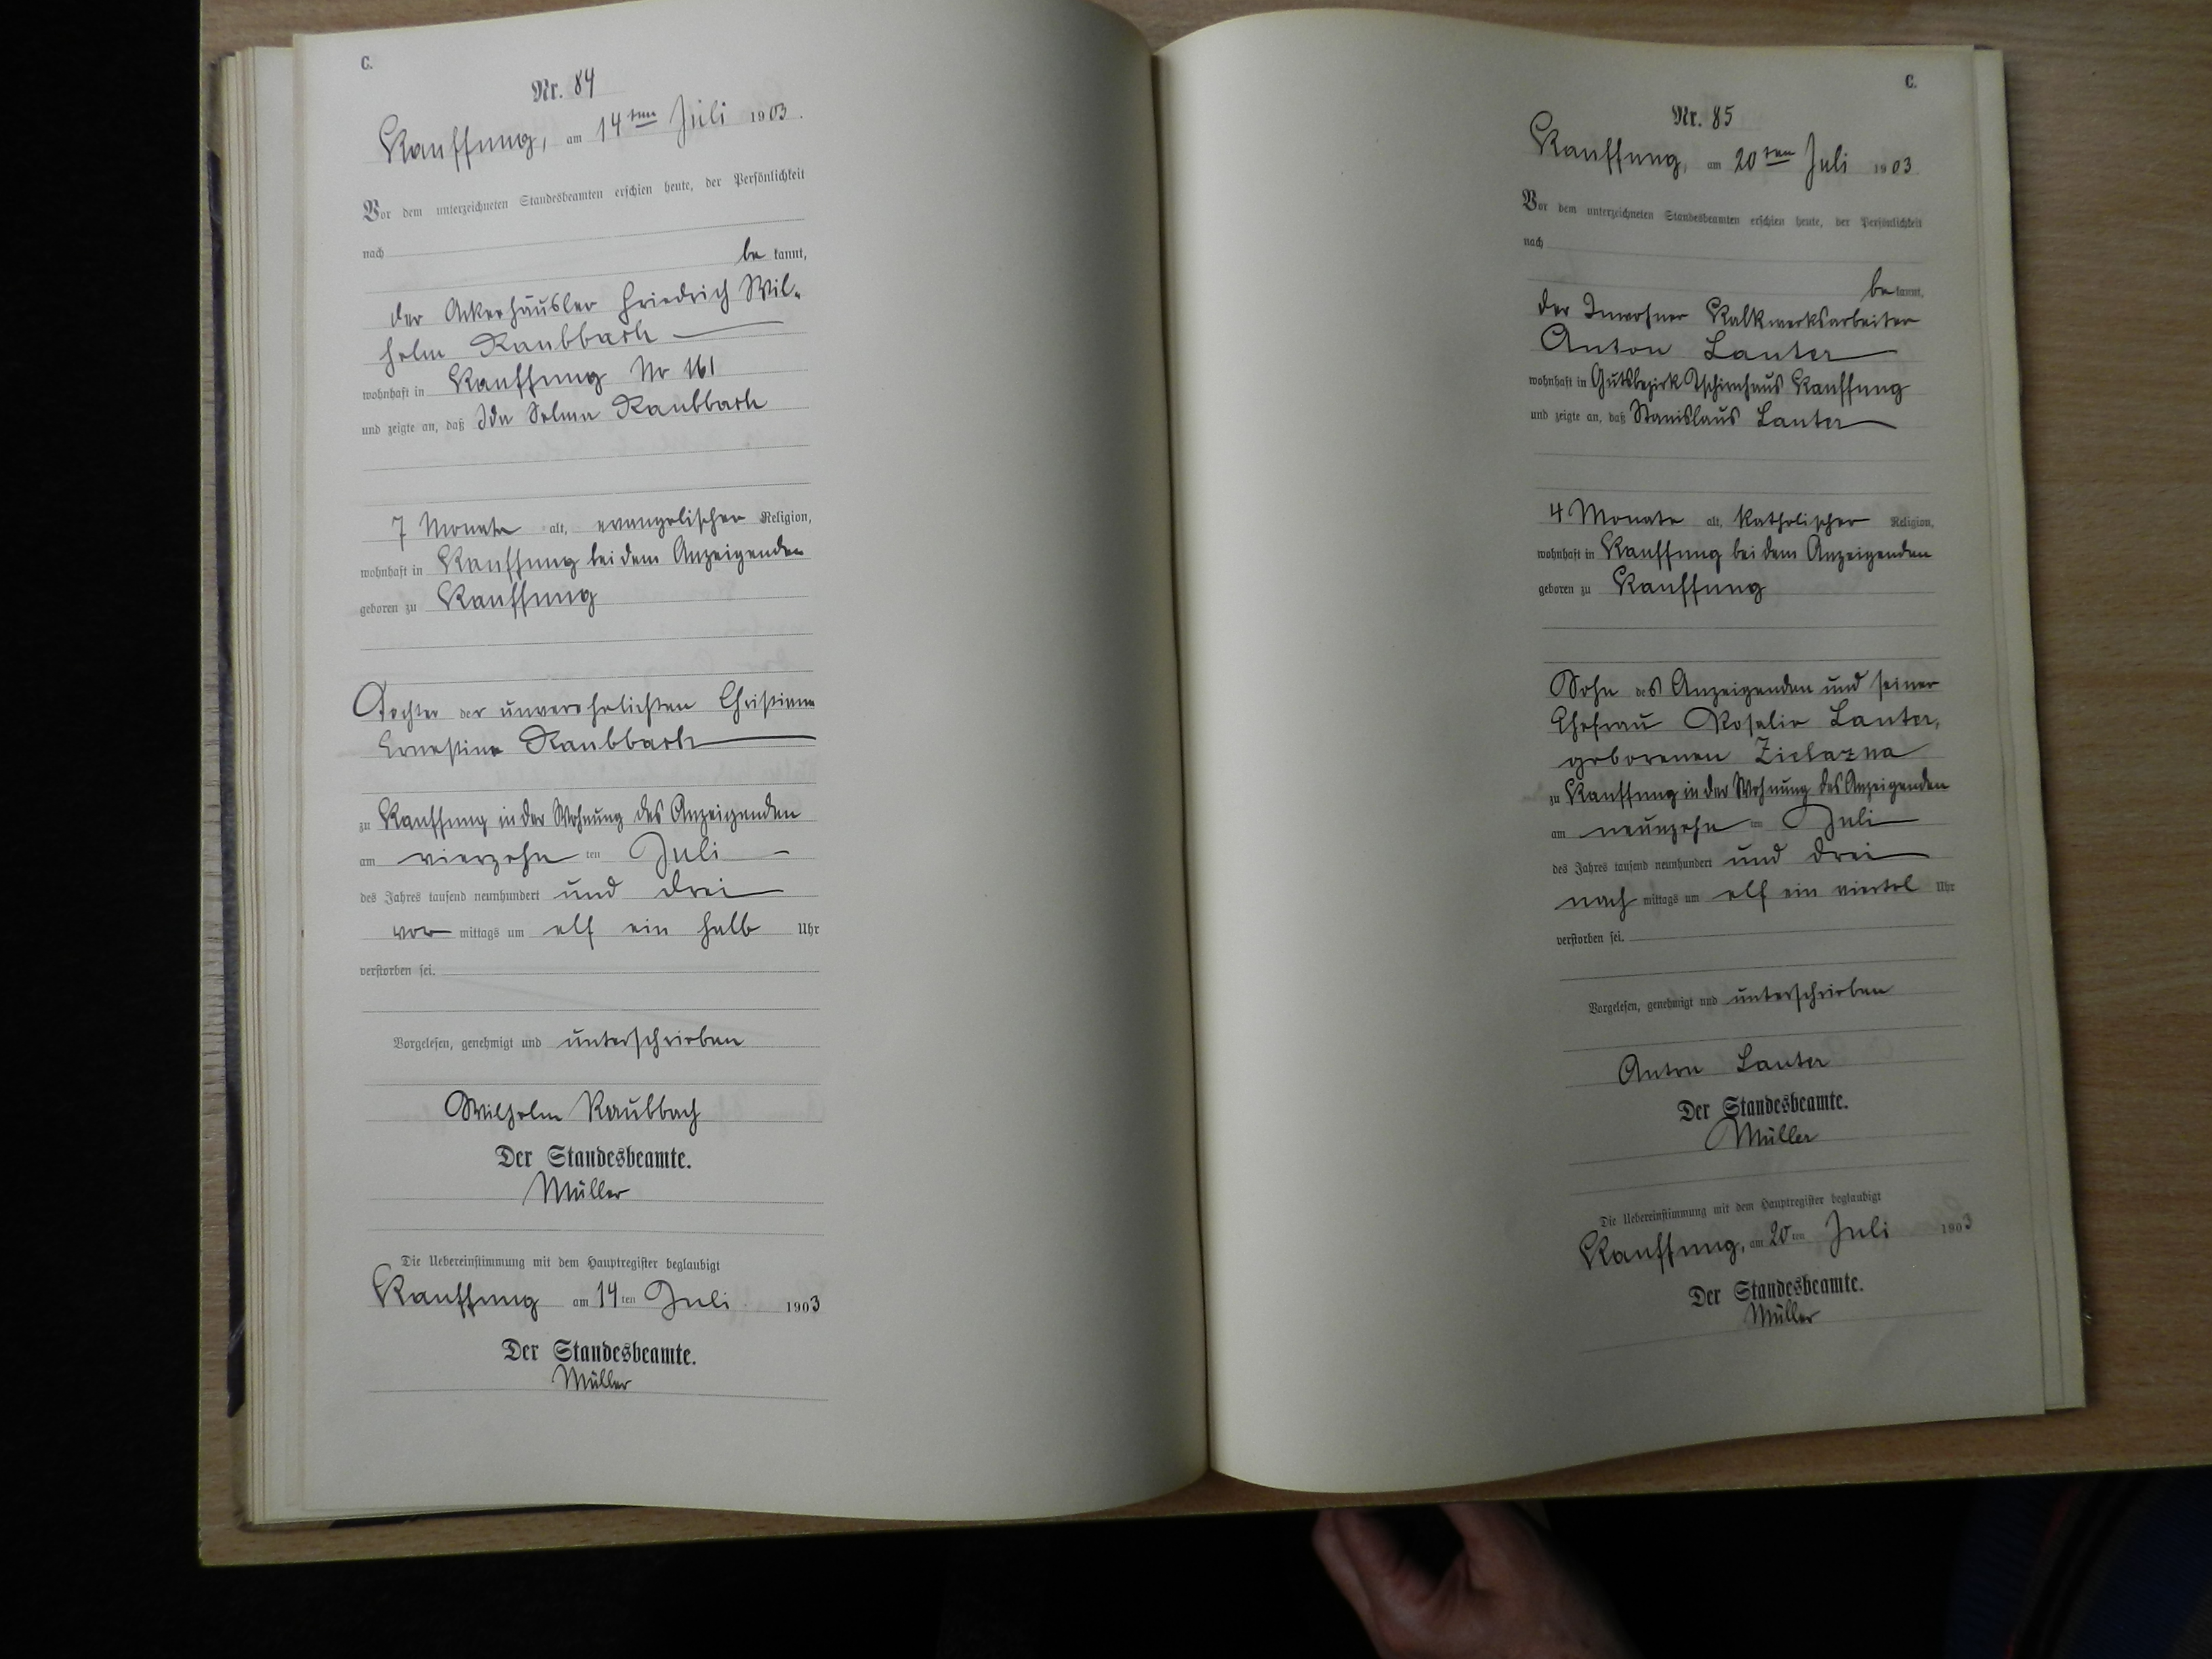 C.
Nr. 84
Kauffung, am 14ten Juli 1903.
Vor dem unterzeichneten Standesbeamten erschien heute, der Persönlichkeit
nach
be kannt,
der Ackerhäusler Friedrich Wil-
helm Raubbach
wohnhaft in Kauffung Nr 161
und zeigte an, daß Ida Selma Raubbach
7 Monate alt, evangelischer Religion,
wohnhaft in Kauffung bei dem Anzeigenden
geboren zu Kauffung
Tochter der unverehelichten Christiane
Ernestine Raubbach
zu Kauffung in der Wohnung des Anzeigenden
am vierzehn ten Juli
des Jahres tausend neunhundert und drei
vor mittags um elf ein halb Uhr
verstorben sei.
Vorgelesen, genehmigt und unterschrieben
Wilhelm Raubbach
Der Standesbeamte.
Müller
Die Uebereinstimmung mit dem Hauptregister beglaubigt
Kauffung am 14ten Juli 1903
Der Standesbeamte.
Müller
C.
Nr. 85
Kauffung, am 20ten Juli 1903
Vor dem unterzeichneten Standesbeamten erschien heute, der Persönlichkeit
nach
be kannt,
der Inwohner Kalkwerksarbeiter
Anton Lanter
wohnhaft in Gutsbezirk Tschirnhaus Kauffung
und zeigte an, daß Stanislaus Lanter
4 Monate alt, katholischer Religion,
wohnhaft in Kauffung bei dem Anzeigenden
geboren zu Kauffung
Sohn des Anzeigenden und seiner
Ehefrau Rosalie Lanter,
geborenen Zielazna
zu Kauffung in der Wohnung des Anzeigenden
am neunzehn ten Juli
des Jahres tausend neunhundert und drei
nach mittags um elf ein viertel Uhr
verstorben sei.
Vorgelesen, genehmigt und unterschrieben
Anton Lanter
Der Standesbeamte.
Müller
Die Uebereinstimmung mit dem Hauptregister beglaubigt
Kauffung, am 20ten Juli 1903
Der Standesbeamte.
Müller